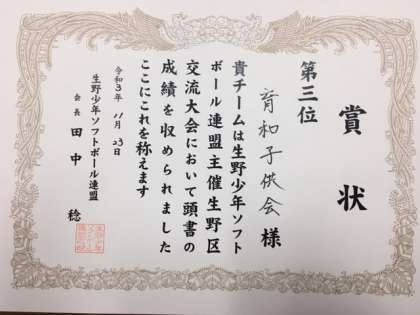 賞状
第三位
育和子供会 様
貴チームは生野少年ソフト
ボール連盟主催生野区
交流大会において頭書の
成績を収められました
ここにこれを称えます
令和3年11月23日
生野少年ソフトボール連盟
会長 田中 稔